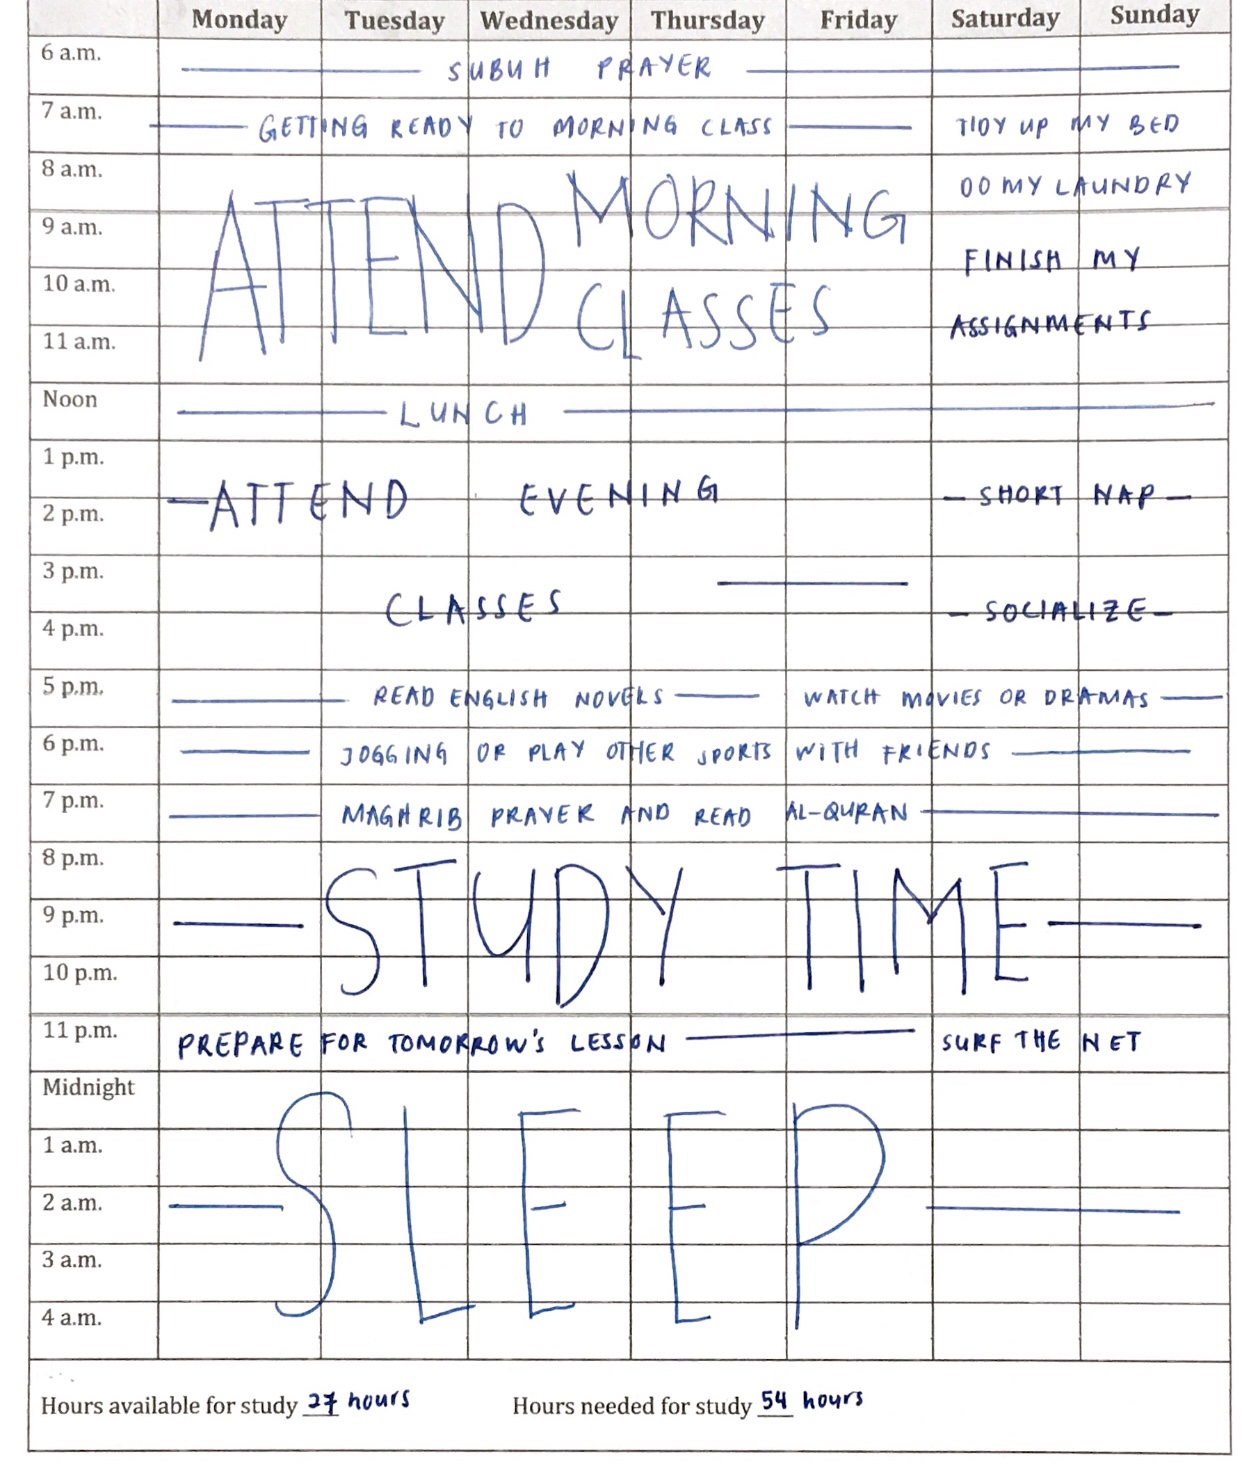 Monday Tuesday Wednesday Thursday Friday Saturday Sunday
6 a.m.
SUBUH PRAYER
7 a.m.
GETTING READY TO MORNING CLASS TIDY UP MY BED
8 a.m.
DO MY LAUNDRY
ATTEND MORNING
9 a.m.
FINISH MY
10 a.m.
CLASSES
ASSIGNMENTS
11 a.m.
Noon
LUNCH
1 p.m.
ATTEND EVENING SHORT NAP
2 p.m.
3 p.m.
CLASSES SOCIALIZE
4 p.m.
5 p.m.
READ ENGLISH NOVELS WATCH MOVIES OR DRAMAS
6 p.m.
JOGGING OR PLAY OTHER SPORTS WITH FRIENDS
7 p.m.
MAGHRIB PRAYER AND READ AL-QURAN
8 p.m.
9 p.m.
STUDY TIME
10 p.m.
11 p.m.
PREPARE FOR TOMORROW'S LESSON SURF THE NET
Midnight
1 a.m.
2 a.m.
SLEEP
3 a.m.
4 a.m.
Hours available for study 27 hours Hours needed for study 54 hours